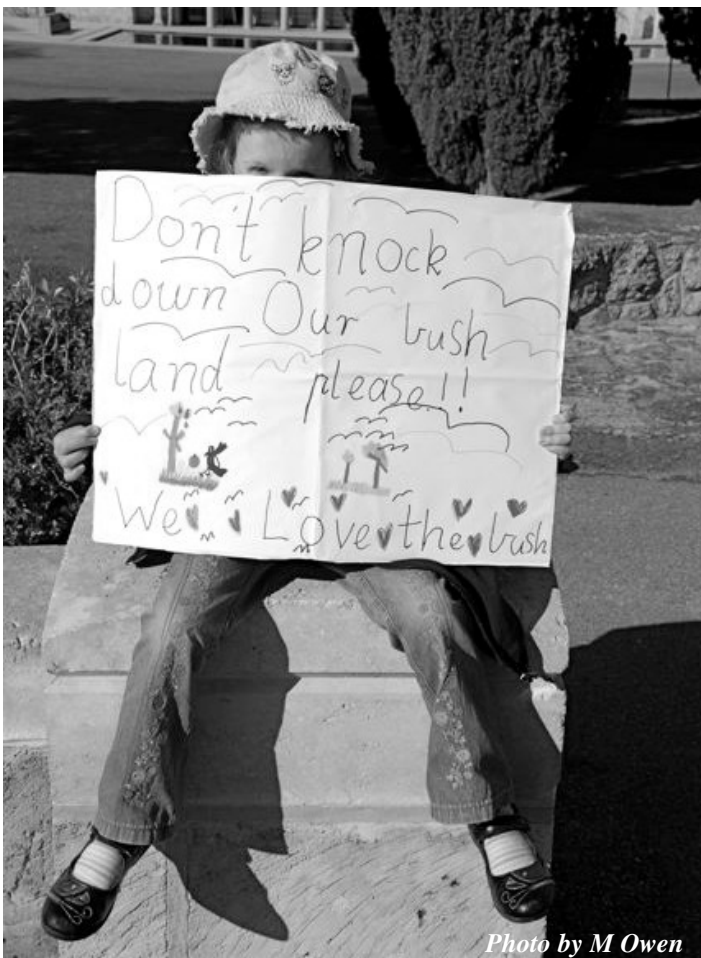 Don't knock
down Our bush
land please!!
We Love the bush
Photo by M Owen